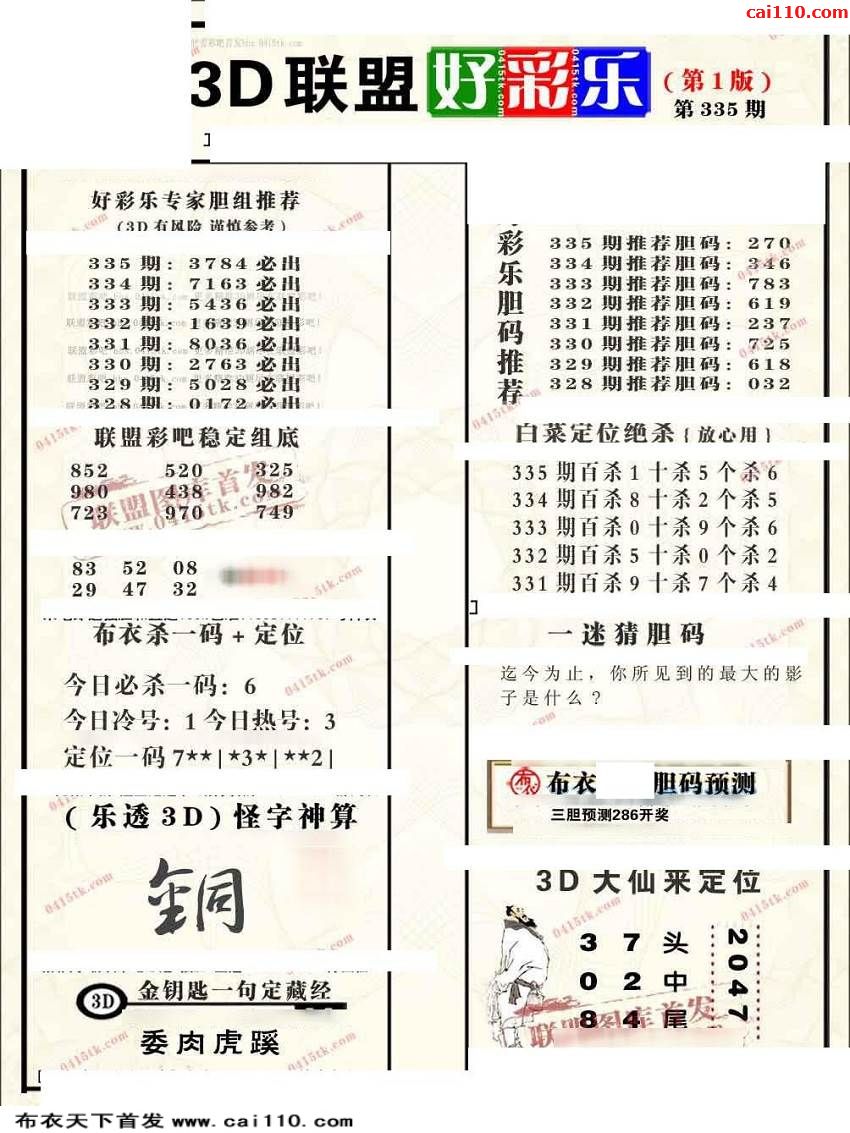 cai110.com
3D联盟好彩乐
(第1版)
第335期
好彩乐专家胆组推荐
(3D有风险 谨慎参考)
335期: 3784必出
334期: 7163必出
333期: 5436必出
332期: 1639必出
331期: 8036必出
330期: 2763必出
329期: 5028必出
328期: 0172必出
联盟彩吧稳定组底
852 520 325
980 438 982
723 970 749
83 52 08
29 47 32
布衣杀一码+定位
今日必杀一码: 6
今日冷号: 1 今日热号: 3
定位一码 7**|*3*|**2|
(乐透3D)怪字神算
銅
3D 金钥匙一句定藏经
委肉虎蹊
彩乐胆码推荐
335期推荐胆码: 270
334期推荐胆码: 346
333期推荐胆码: 783
332期推荐胆码: 619
331期推荐胆码: 237
330期推荐胆码: 725
329期推荐胆码: 618
328期推荐胆码: 032
白菜定位绝杀{放心用}
335期百杀1十杀5个杀6
334期百杀8十杀2个杀5
333期百杀0十杀9个杀6
332期百杀5十杀0个杀2
331期百杀9十杀7个杀4
一迷猜胆码
迄今为止，你所见到的最大的影
子是什么？
布衣 胆码预测
三胆预测286开奖
3D大仙来定位
3 7 头
0 2 中
8 4 尾
2047
联盟图库首发
0415tk.com
布衣天下首发 www.cai110.com